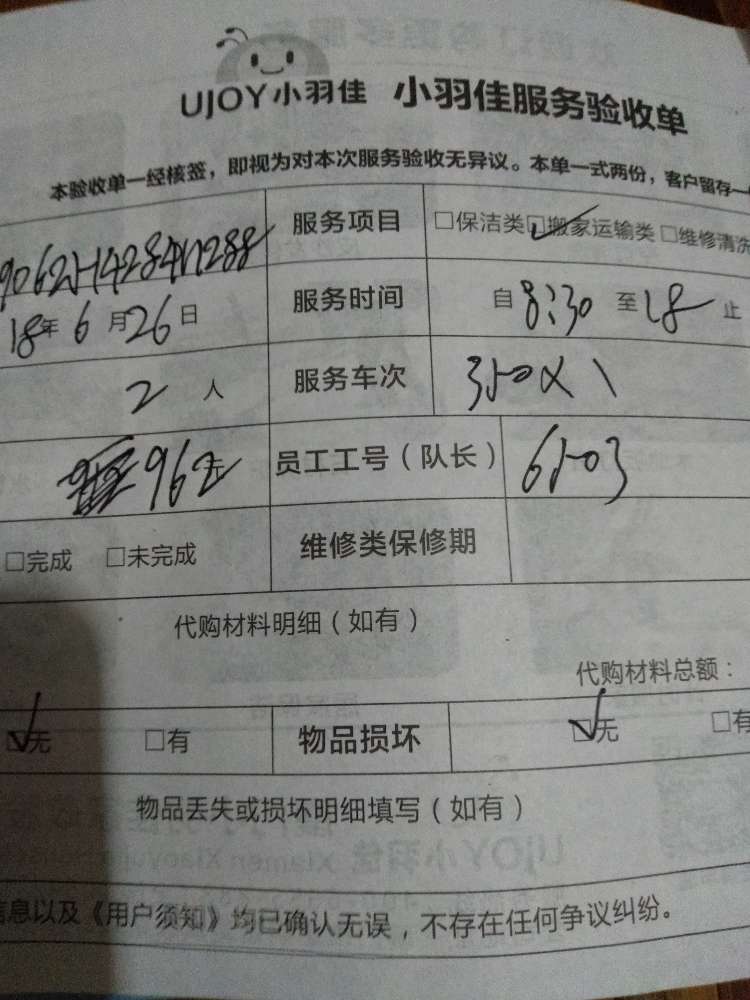 UJOY小羽佳 小羽佳服务验收单
本验收单一经核签，即视为对本次服务验收无异议。本单一式两份，客户留存一
服务项目 □保洁类 ☑搬家运输类 □维修清洗
18年6月26日 服务时间 自8:30至18止
2人 服务车次 350×1
962 员工工号（队长） 6503
□完成 □未完成 维修类保修期
代购材料明细（如有）
代购材料总额：
☑无 □有 物品损坏 ☑无 □有
物品丢失或损坏明细填写（如有）
信息以及《用户须知》均已确认无误，不存在任何争议纠纷。